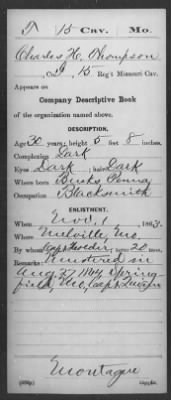 T 15 Cav. Mo.
Charles H. Thompson
, Co. I, 15 Reg't Missouri Cav.
Appears on
Company Descriptive Book
of the organization named above.
DESCRIPTION.
Age 30 years; height 5 feet 8 inches.
Complexion Dark
Eyes Dark; hair Dark
Where born Bucks Penna
Occupation Blacksmith
ENLISTMENT.
When Nov. 1, 1863.
Where Melville, Mo.
By whom Capt ; term 20 mos.
Remarks: Remustered in
Aug 27 1864 Spring-
field, Mo, Capt
Montague
Copyist.